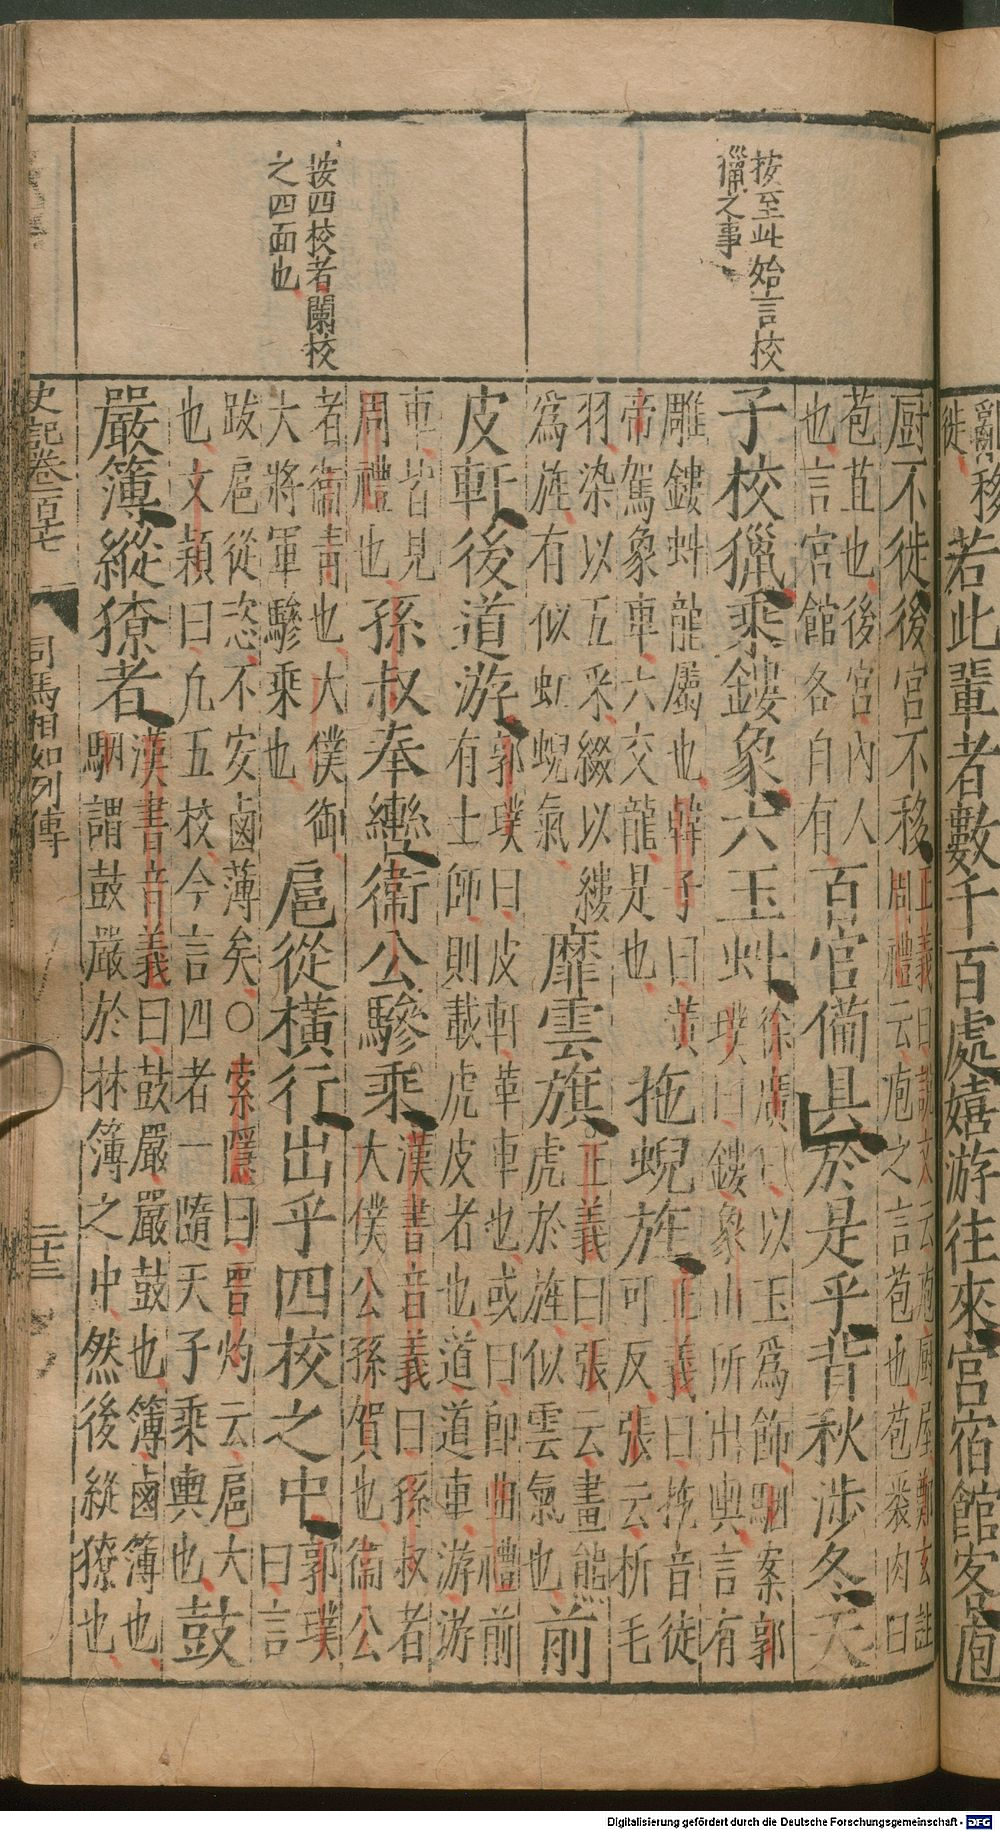 亂移
徙
若此輩者數千百處嬉游往來宮宿館客庖
按至此始言校
獵之事
按四校者闌校
之四面也
厨不徙後宮不移正義曰說文云庖厨屋鄭玄註
周禮云庖之言苞也苞褁肉曰
苞苴也後宮內人
也言宮館各自有百官備具於是乎背秋涉冬天
子校獵乘鏤象六玉虯徐廣曰以玉為飾駰案郭
璞曰鏤象山所出輿言有
雕鏤虯龍屬也韓子曰黃
帝駕象車六交龍是也拖蜺旌正義曰拕音徒
可反張云析毛
羽染以五采綴以縷
為旌有似虹蜺氣靡雲旗正義曰張云畫熊
虎於旌似雲氣也前
皮軒後道游郭璞曰皮軒革車也或曰即曲禮前
有士師則載虎皮者也道道車游游
車皆見
周禮也孫叔奉轡衞公驂乘漢書音義曰孫叔者
大僕公孫賀也衞公
者衞青也大僕御
大將軍驂乘也扈從橫行出乎四校之中郭璞
曰言
跋扈從恣不安鹵薄矣○索隱曰晋灼云扈大
也文穎曰凢五校今言四者一隨天子乘輿也鼓
嚴簿縱獠者漢書音義曰鼓嚴嚴鼓也簿鹵簿也
駰謂鼓嚴於林簿之中然後縱獠也
史記卷一百十七
司馬相如列傳
二十三
Digitalisierung gefördert durch die Deutsche Forschungsgemeinschaft - DFG